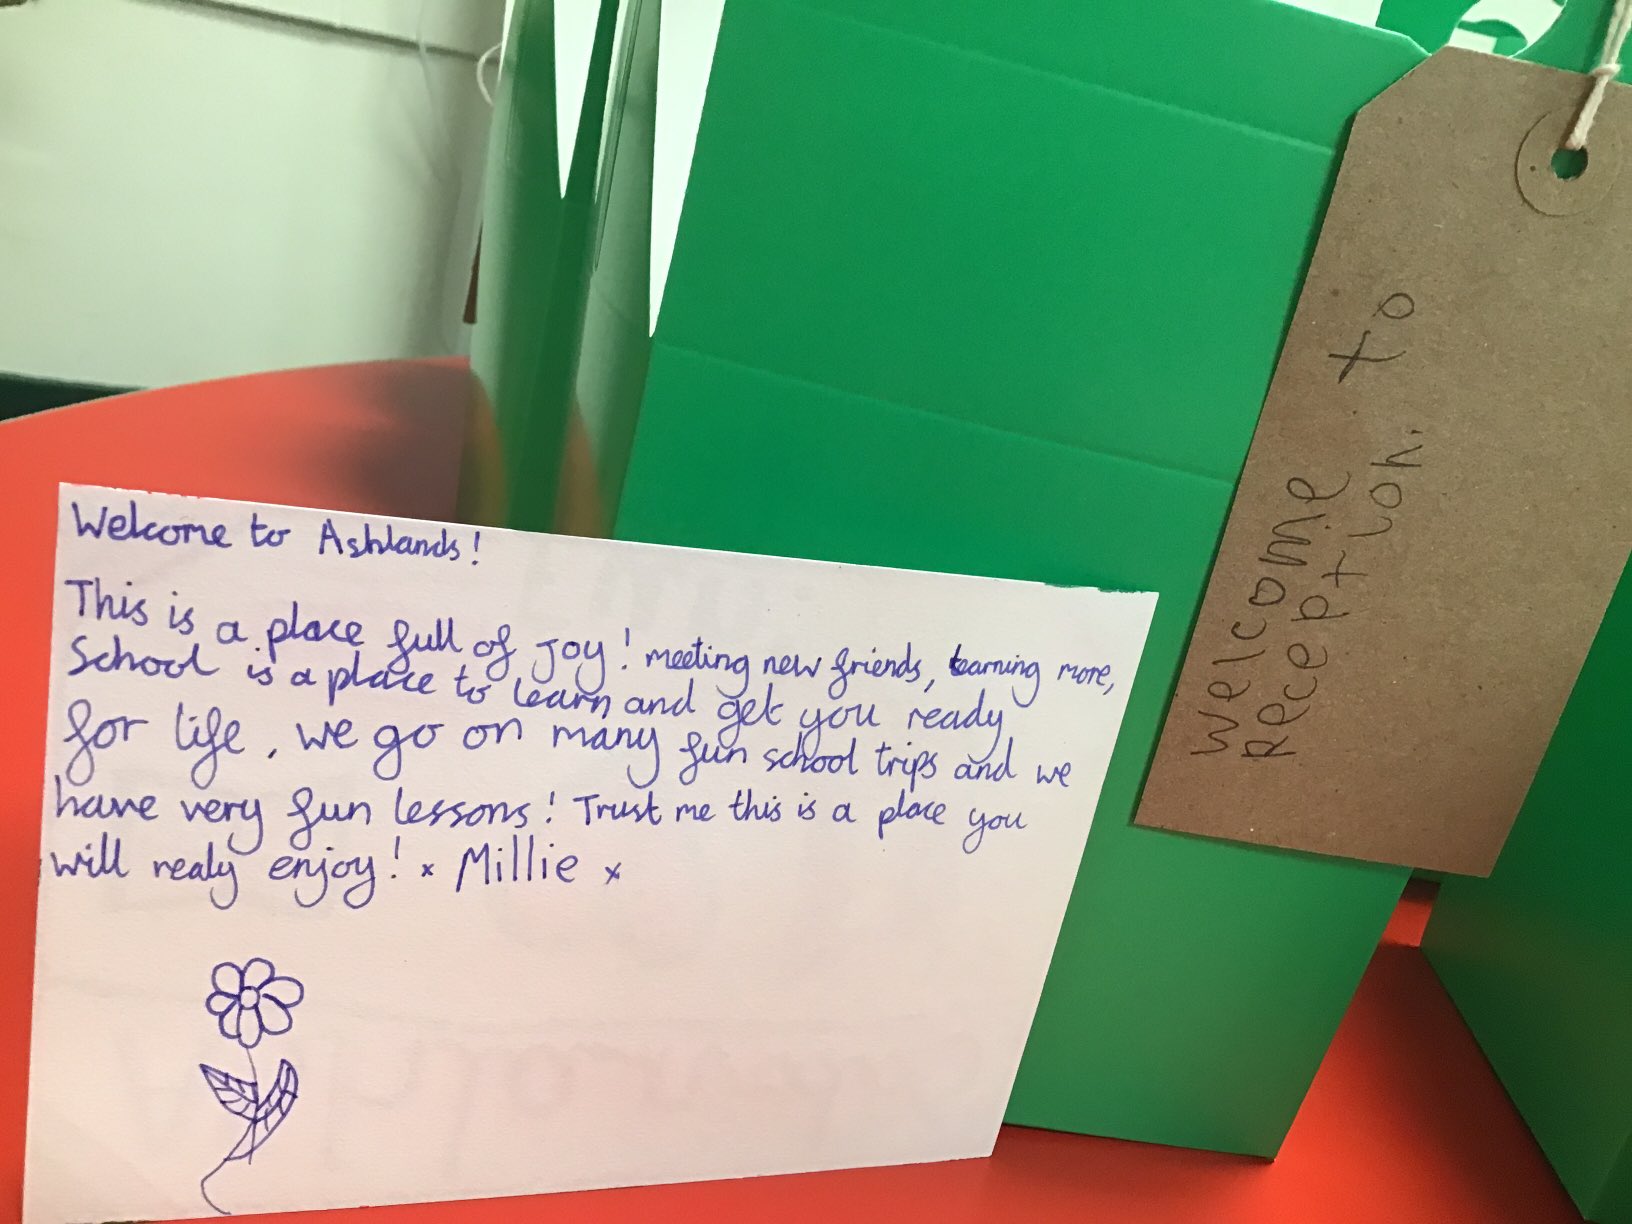 Welcome to Ashlands!
This is a place full of joy! meeting new friends, learning more,
School is a place to learn and get you ready
for life, we go on many fun school trips and we
have very fun lessons! Trust me this is a place you
will realy enjoy! x Millie x
Welcome to
Reception.